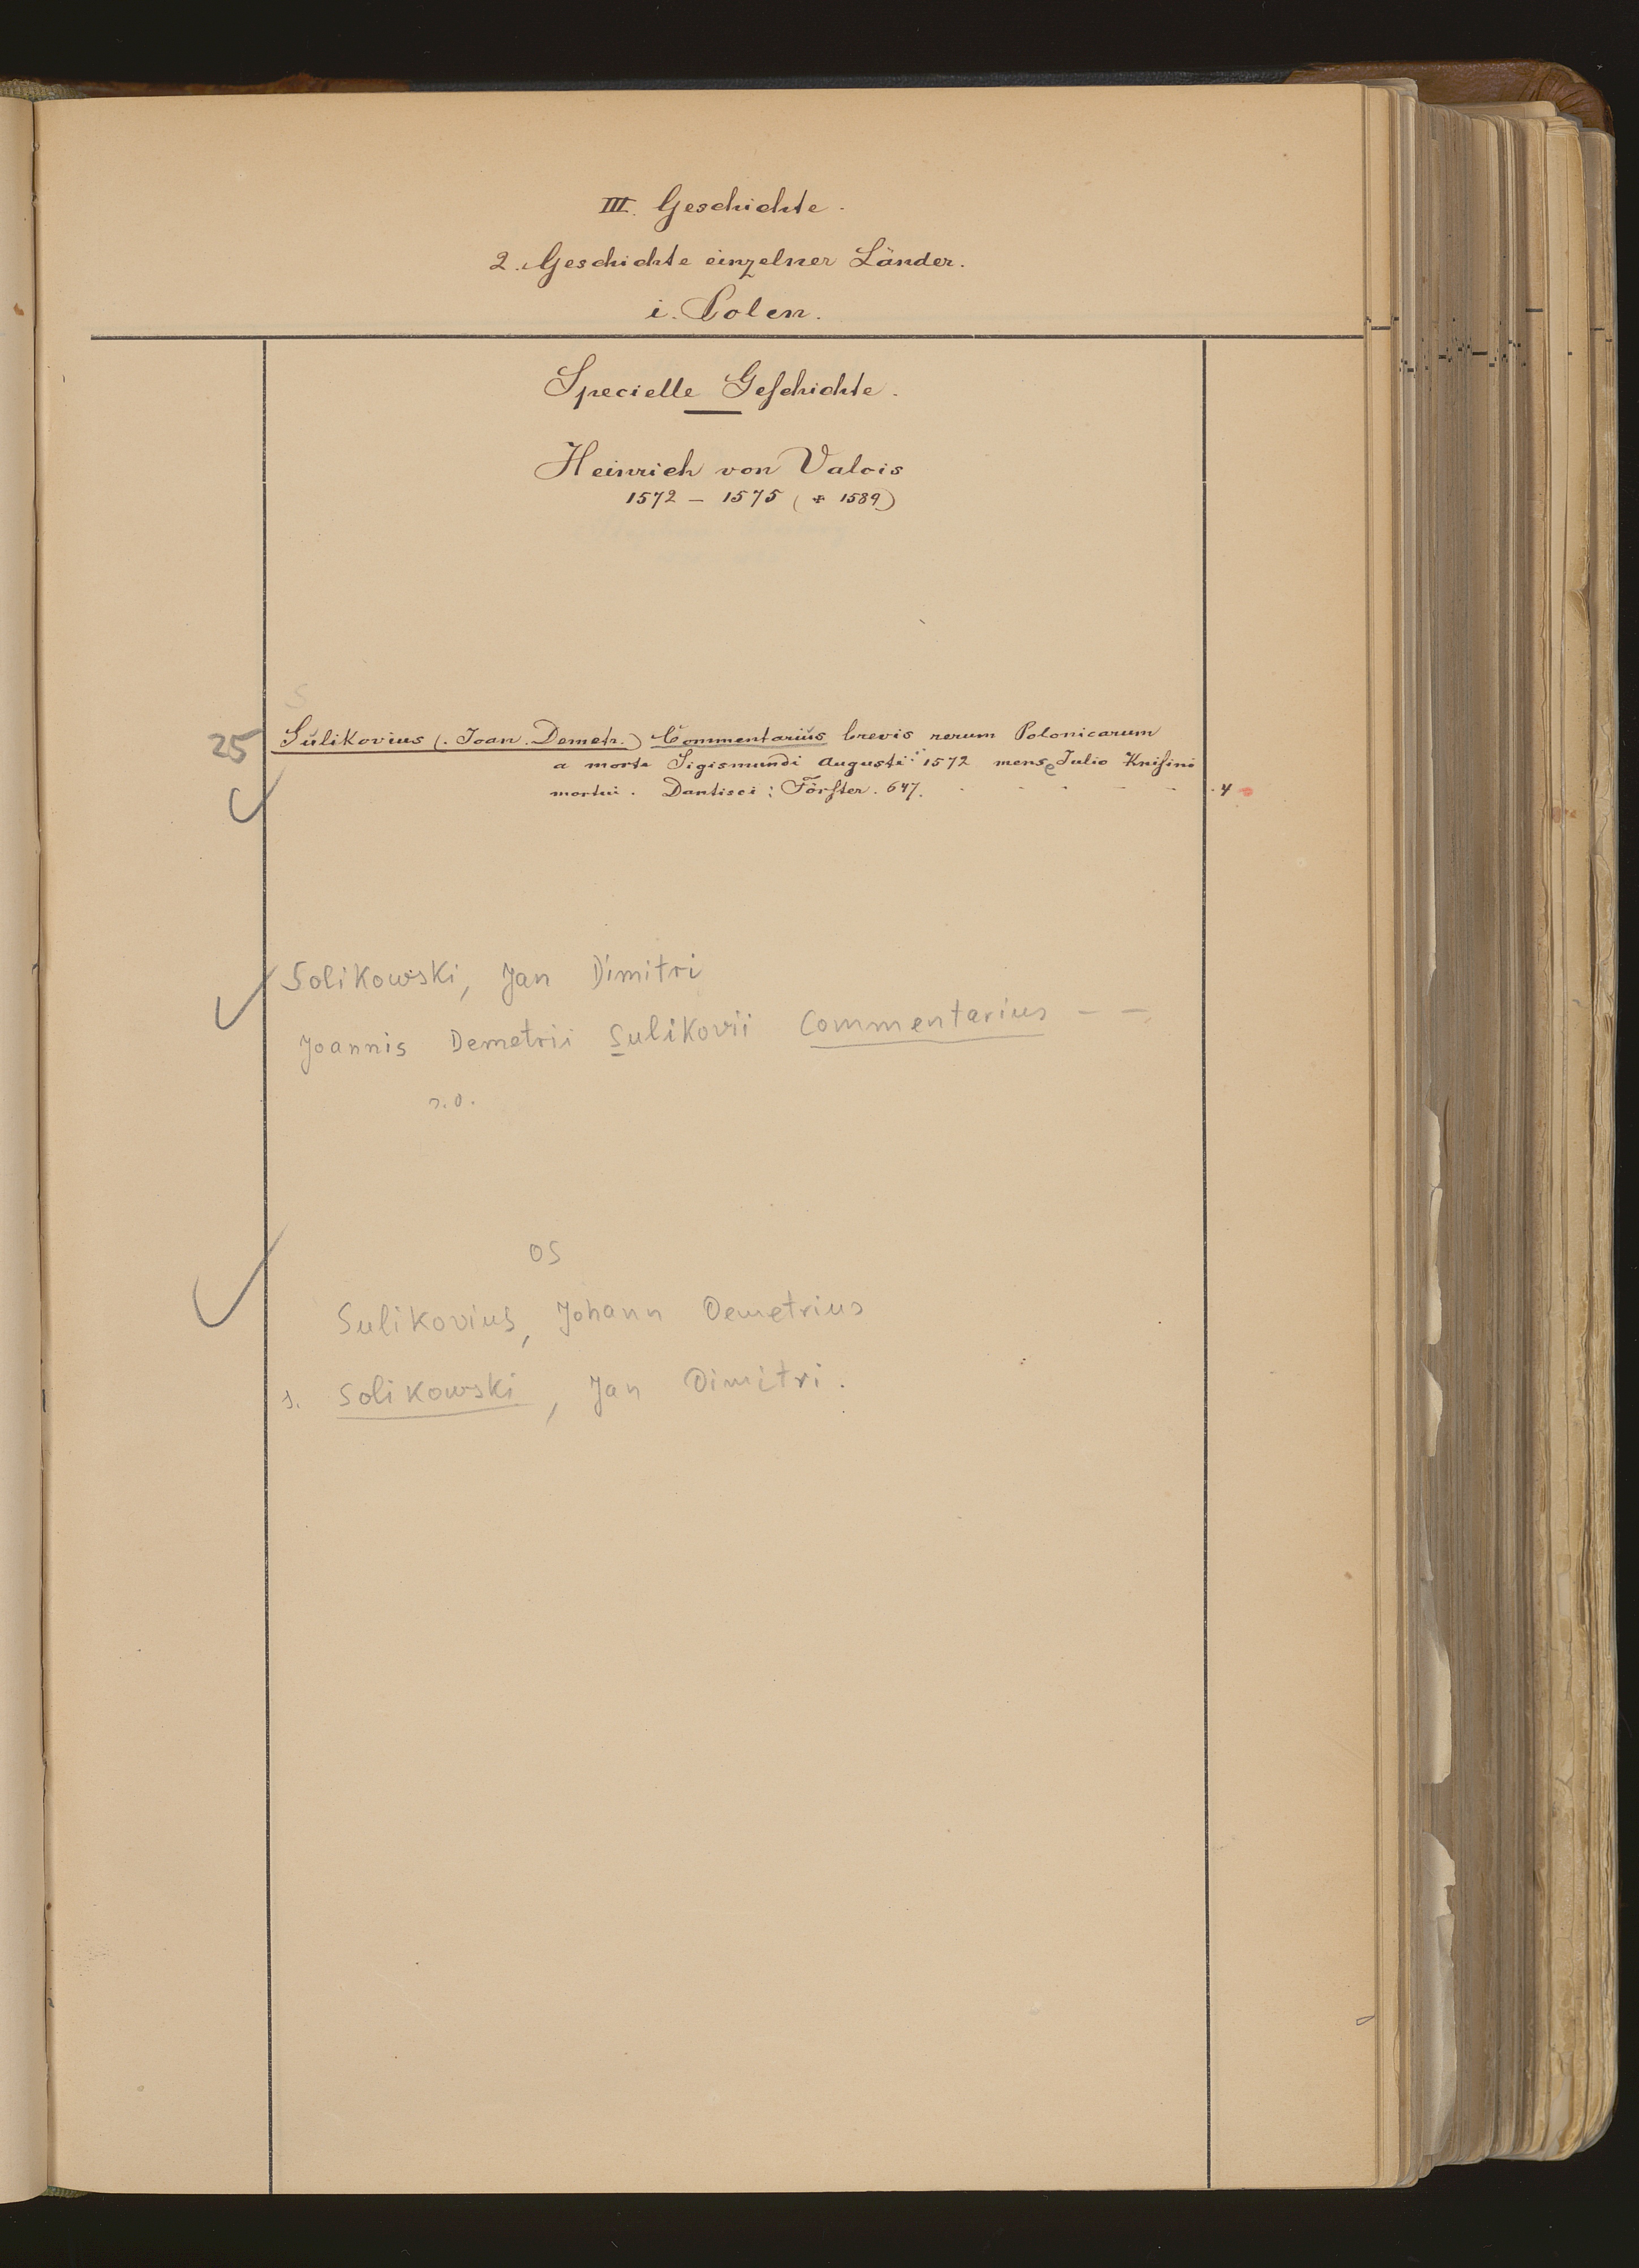 III. Geschichte.
2. Geschichte einzelner Länder.
i. Polen.
Specielle Geschichte.
Heinrich von Valois
1572 – 1575 († 1589)
S
25 Sulikovius (. Joan. Demetr.) Commentarius brevis rerum Polonicarum
a morte Sigismundi Augusti 1572 mense Julio Knisini
mortui. Dantisci: Förster. 647. . . . - - - . 4
Solikowski, Jan Dimitri
Joannis Demetrii Sulikovii Commentarius – –
s.o.
OS
Sulikovius, Johann Demetrius
s. Solikowski, Jan Dimitri.